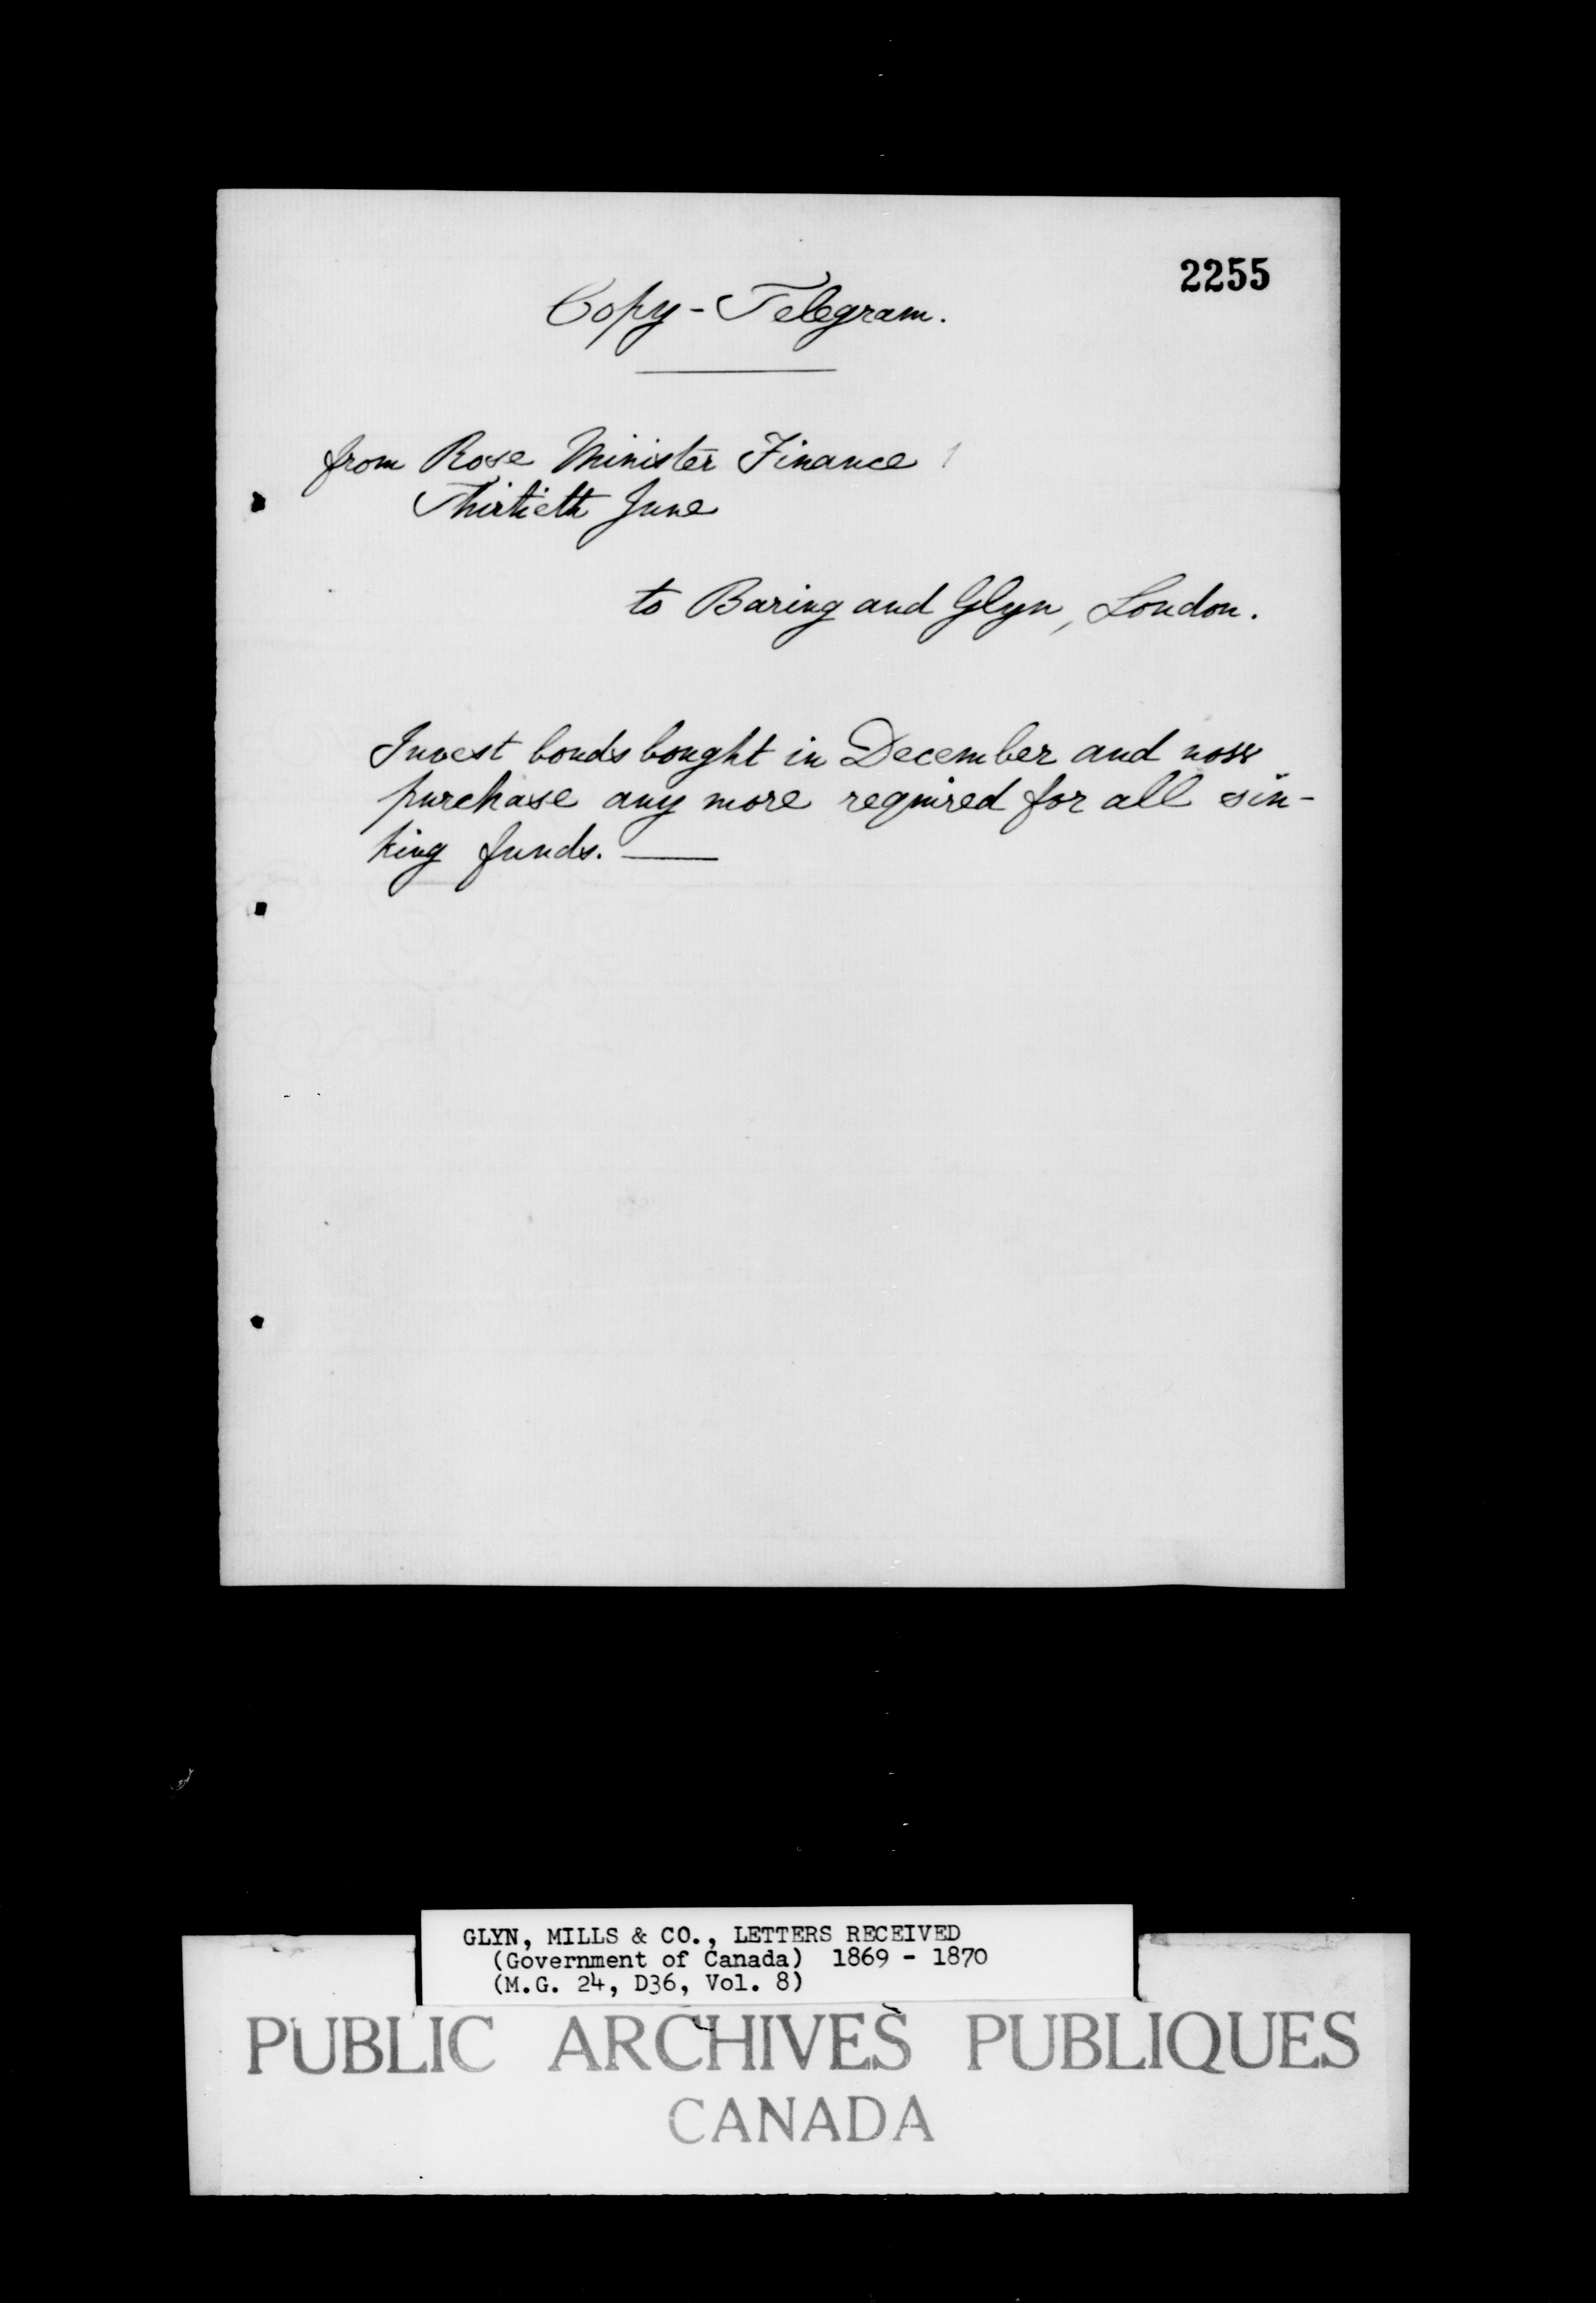 2255
Copy - Telegram.
from Rose Minister Finance
Thirtieth June
to Baring and Glyn, London.
Invest bonds bought in December and now
purchase any more required for all sin-
king funds.
GLYN, MILLS & CO., LETTERS RECEIVED
(Government of Canada) 1869 - 1870
(M.G. 24, D36, Vol. 8)
PUBLIC ARCHIVES PUBLIQUES
CANADA